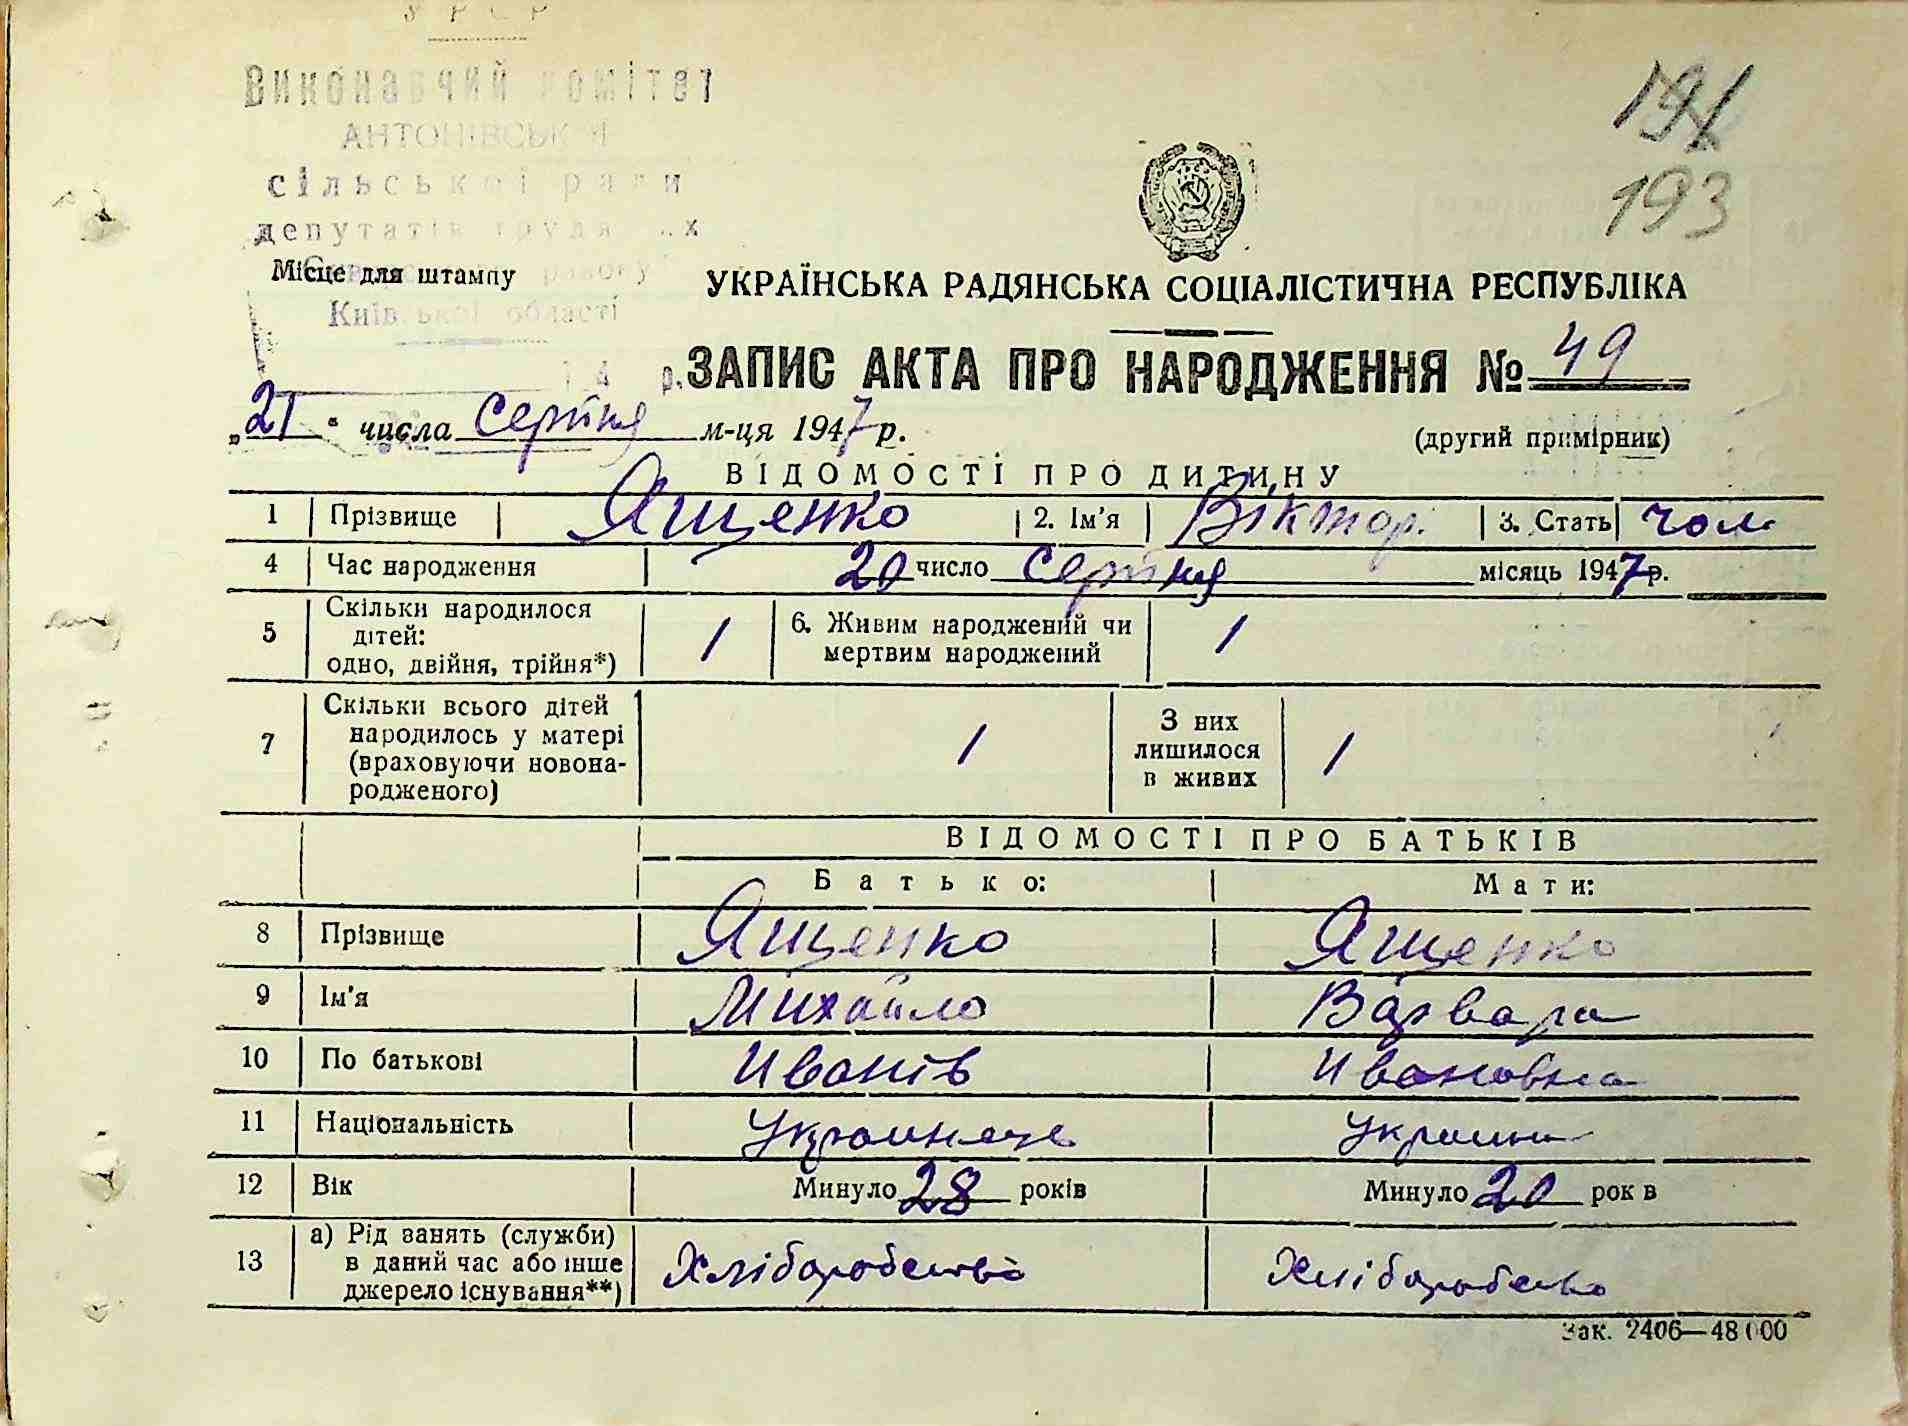 УРСР
Виконавчий комітет
АНТОНІВСЬКОЇ
сільської ради
депутатів трудящих
Місце для штампу
Київської області
191
193
УКРАЇНСЬКА РАДЯНСЬКА СОЦІАЛІСТИЧНА РЕСПУБЛІКА
ЗАПИС АКТА ПРО НАРОДЖЕННЯ № 49
„21" числа серпня м-ця 1947 р.
(другий примірник)
ВІДОМОСТІ ПРО ДИТИНУ
1 Прізвище Ященко 2. Ім'я Віктор. 3. Стать чол
4 Час народження 20 число серпня місяць 1947 р.
5 Скільки народилося дітей: одно, двійня, трійня*) 1 6. Живим народжений чи мертвим народжений 1
7 Скільки всього дітей народилось у матері (враховуючи новона-родженого) 1 З них лишилося в живих 1
ВІДОМОСТІ ПРО БАТЬКІВ
Батько: Мати:
8 Прізвище Ященко Ященко
9 Ім'я Михайло Варвара
10 По батькові Иванів Ивановна
11 Національність Украинець Украин
12 Вік Минуло 28 років Минуло 20 рок в
13 а) Рід занять (служби) в даний час або інше джерело існування**) Хліборобство Хліборобство
Зак. 2406—48000